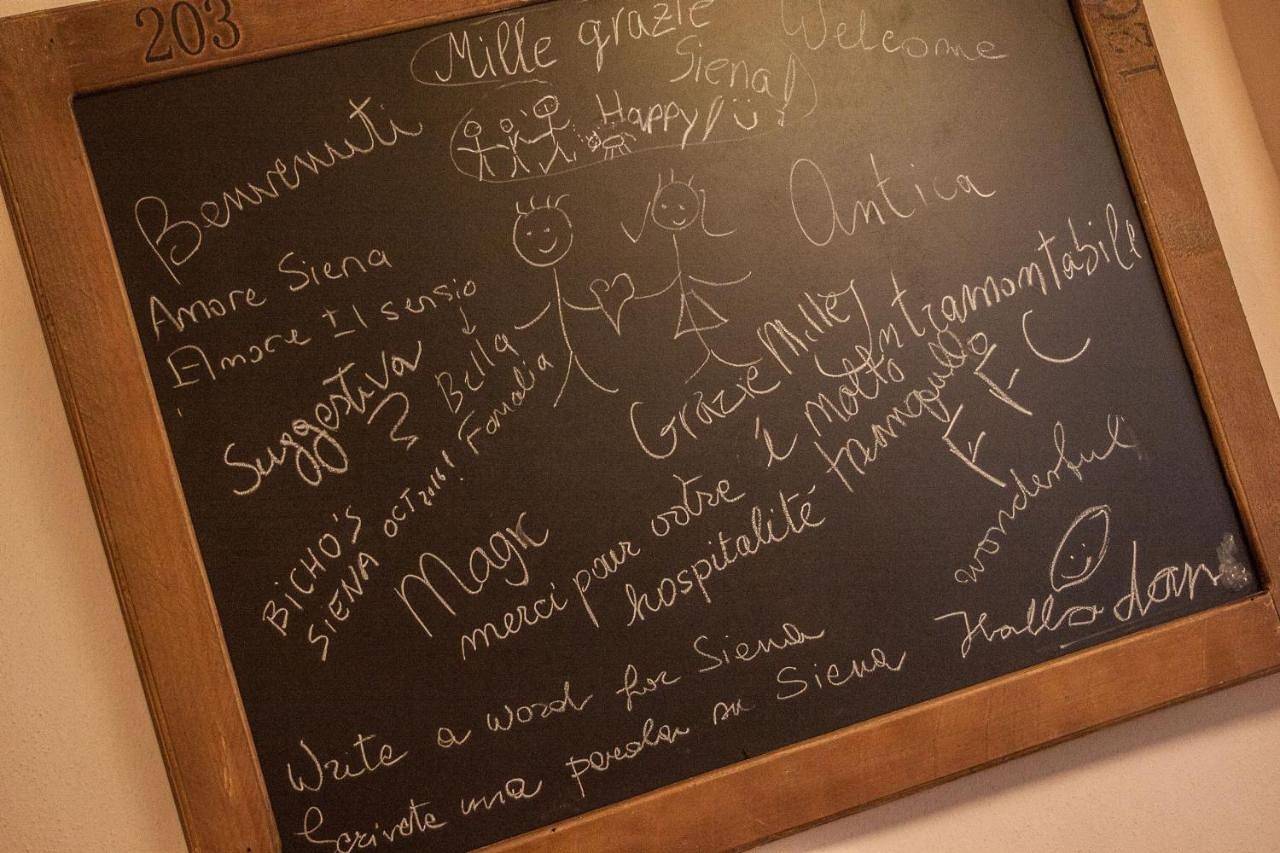 203
120
Mille grazie
Siena!
Happy!
Welcome
Benvenuti
Antica
Amore Siena
Amore Il sensio
Bella
Suggestiva
Grazie Mille!
Intramontabile
é molto
tranquillo
BICHO'S
SIENA OCT 2016!
Magic
merci pour votre
hospitalité
wonderful
Hallo dan
Write a word for Siena
Scrivete una parola su Siena